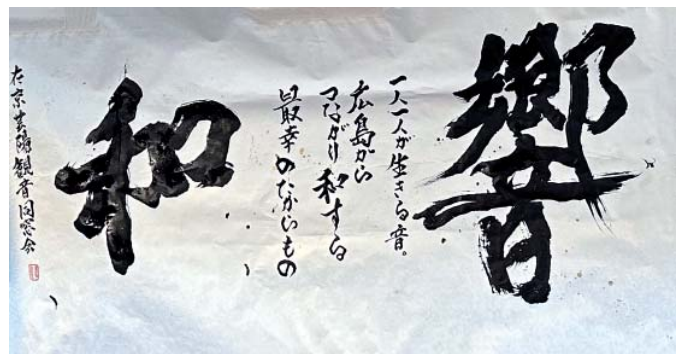 響
一人一人が生きる音。
広島から
つながり和する
最幸のたからもの
和
在京芸陽観音同窓会